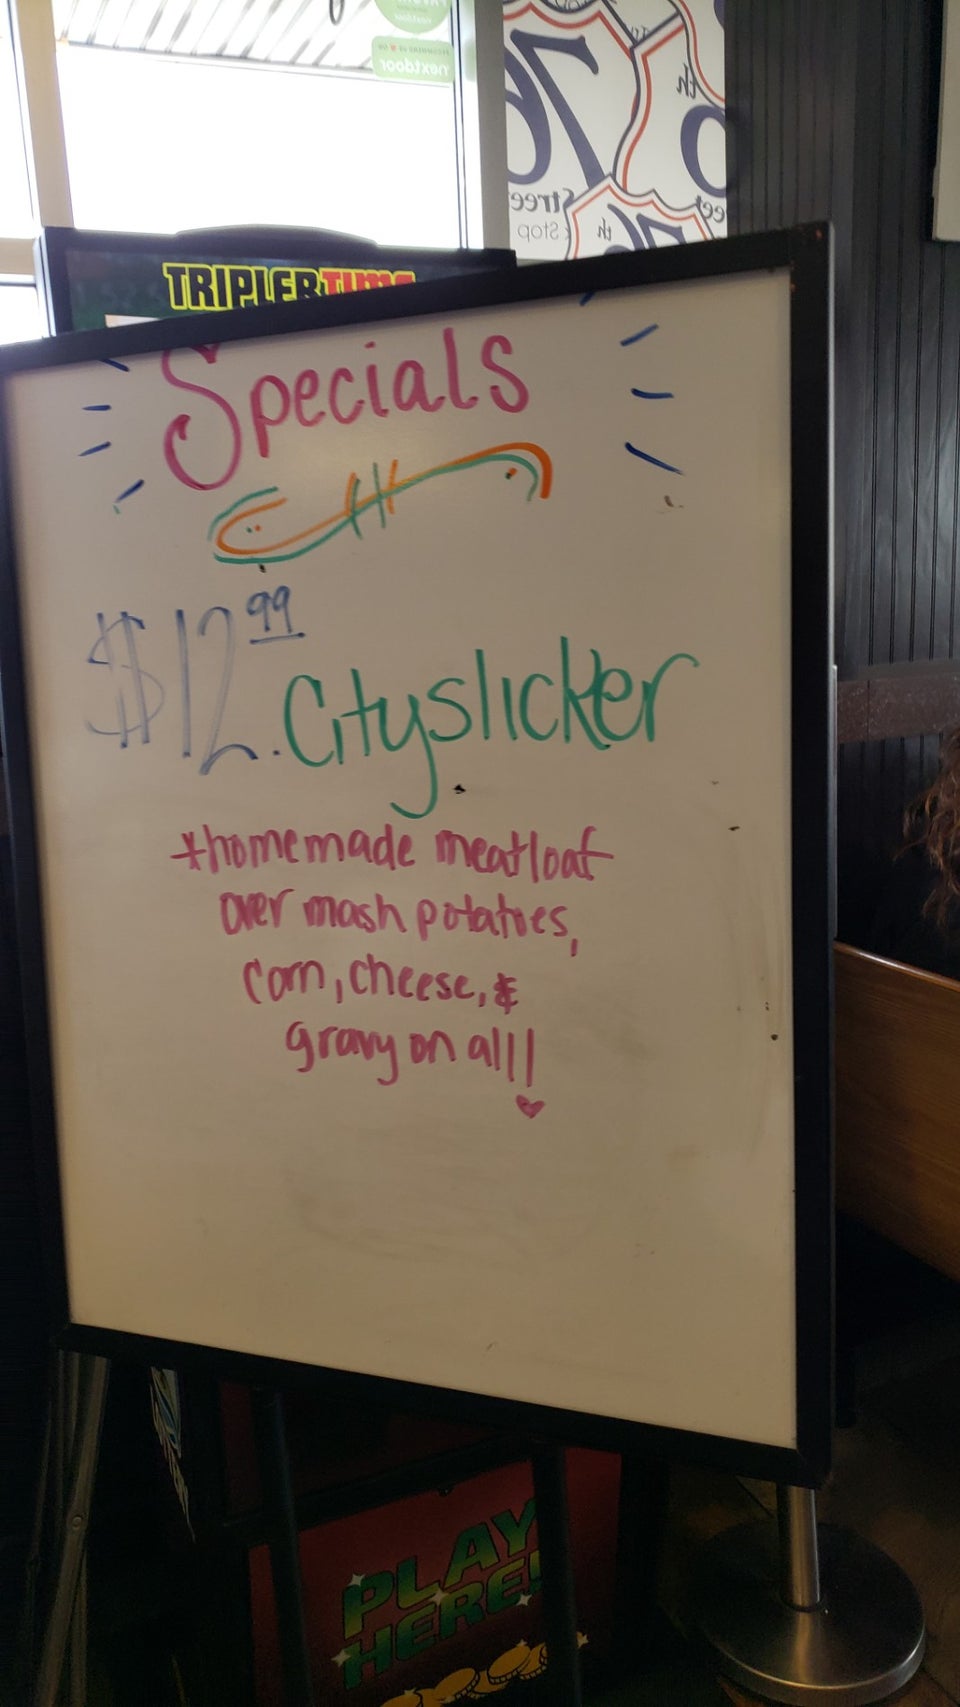 nextdoor
76
th
th
Street
Stop
th
TRIPLER TIME
Specials
$12.99
Cityslicker
*homemade meatloaf
over mash potatoes,
corn, cheese, &
gravy on all!
PLAY
HERE!